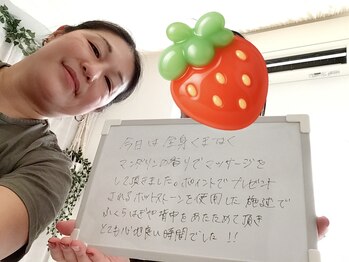 今日は全身くまなく
マンダリンの香りでマッサージを
して頂きました。ポイントでプレゼント
されるホットストーンを使用した施術で
ふくらはぎや背中をあたためて頂き
とても心地良い時間でした!!